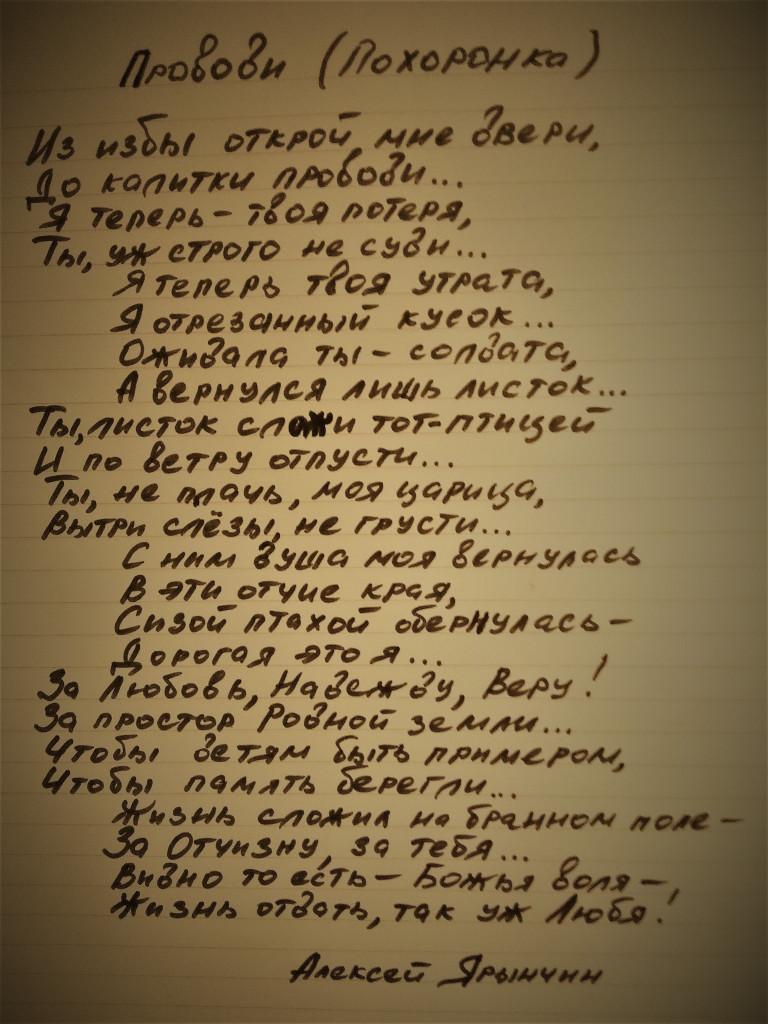 Проводи (Похоронка)
Из избы открой мне двери,
До калитки проводи...
Я теперь - твоя потеря,
Ты, уж строго не суди...
Я теперь твоя утрата,
Я отрезанный кусок...
Ожидала ты - солдата,
А вернулся лишь листок...
Ты, листок сложи тот-птицей
И по ветру отпусти...
Ты, не плачь, моя царица,
Вытри слёзы, не грусти...
С ним душа моя вернулась
В эти отчие края,
Сизой птахой обернулась -
Дорогая это я...
За Любовь, Надежду, Веру!
За простор Родной земли...
Чтобы детям быть примером,
Чтобы память берегли...
Жизнь сложил на бранном поле -
За Отчизну, за тебя...
Видно то есть - Божья воля -
Жизнь отдать, так уж Любя!
Алексей Ярынчин